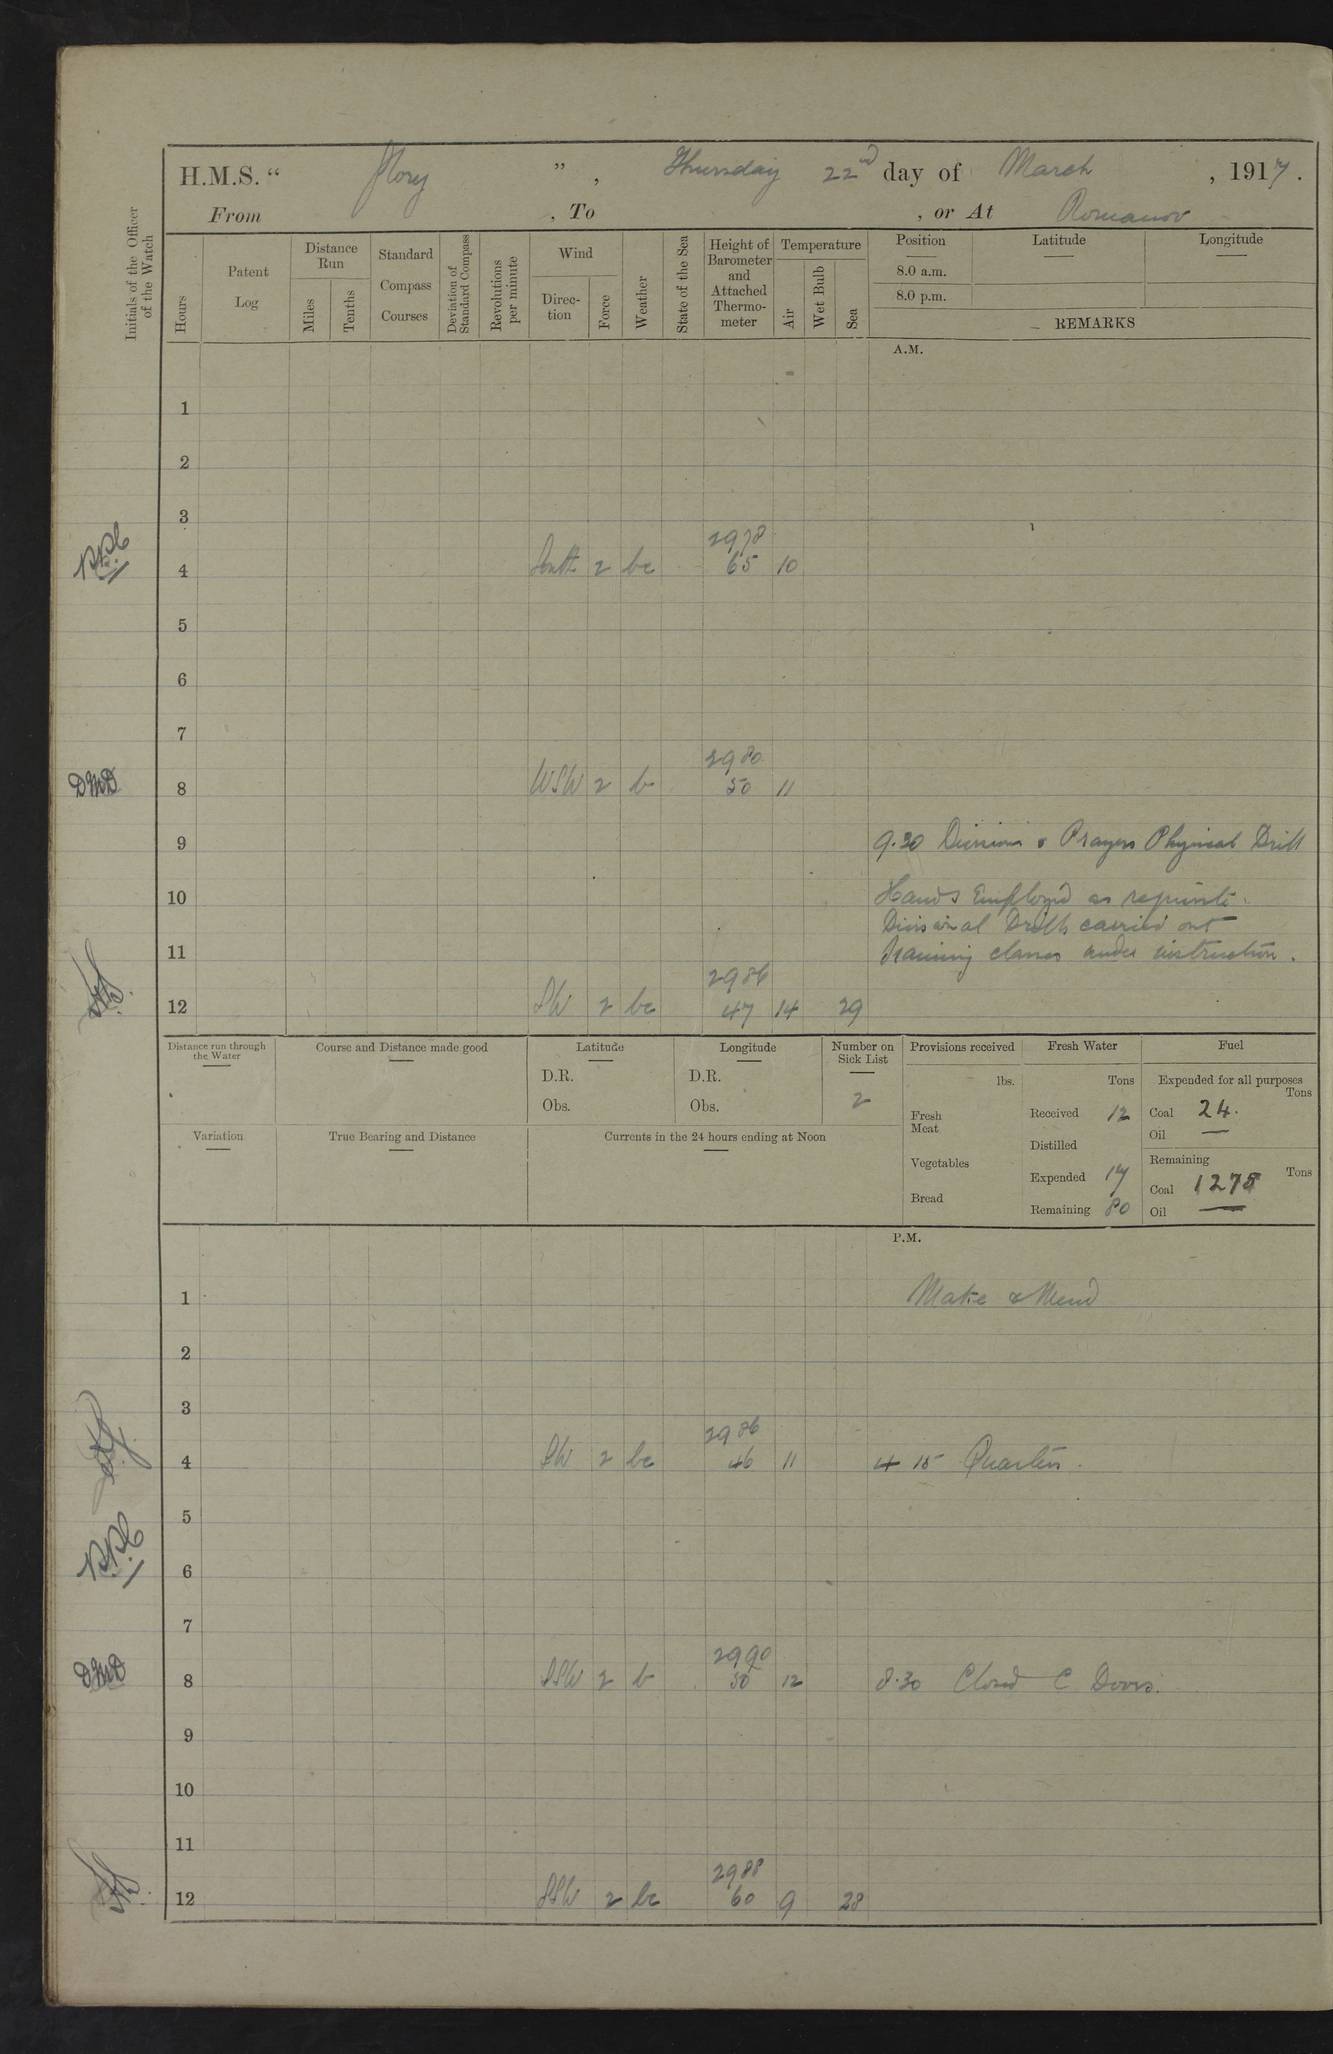 H.M.S. “ Glory ” , Thursday 22nd day of March , 1917 .
From , To , or At Romanov
Initials of the Officer of the Watch
Hours
Patent Log
Distance Run
Miles
Tenths
Standard Compass Courses
Deviation of Standard Compass
Revolutions per minute
Wind
Direc-tion
Force
Weather
State of the Sea
Height of Barometer and Attached Thermo-meter
Temperature
Air
Wet Bulb
Sea
Position Latitude Longitude
8.0 a.m.
8.0 p.m.
REMARKS
A.M.
1
2
3
2978
4 South 2 bc 65 10
5
6
7
2980
DMD 8 WSW 2 b 50 11
9 9.30 Divisions & Prayers Physical Drill
10 Hands Employed as requisite.
Divisional Drills carried out
11 Training classes under instruction.
2986
12 SW 2 bc 47 14 29
Distance run through the Water
Course and Distance made good
Latitude
D.R.
Obs.
Longitude
D.R.
Obs.
Number on Sick List
2
Variation
True Bearing and Distance
Currents in the 24 hours ending at Noon
Provisions received
lbs.
Fresh Meat
Vegetables
Bread
Fresh Water
Tons
Received 12
Distilled
Expended 17
Remaining 80
Fuel
Expended for all purposes
Tons
Coal 24.
Oil —
Remaining
Tons
Coal 1275
Oil —
P.M.
1 Make & Mend
2
3
2986
4 SW 2 bc 46 11 4 15 Quarters.
5
6
7
2990
DMD 8 SSW 2 b 50 12 8.30 Closed C Doors.
9
10
11
2988
12 SSW 2 bc 60 9 28